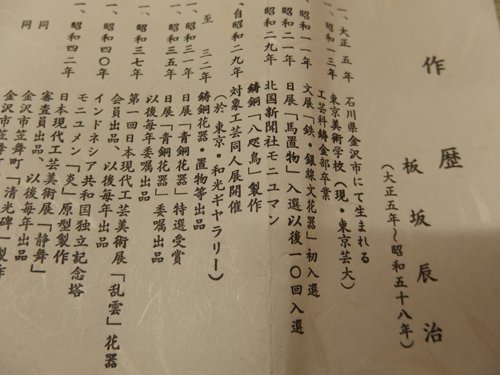 作歴
板坂辰治
(大正五年~昭和五十八年)
一、大正五年 石川県金沢市にて生まれる
一、昭和一三年 東京美術学校(現・東京芸大)
工芸科鋳金部卒業
一、昭和一一年 文展「鉄・銀線文花器」初入選
一、昭和二一年 日展「馬置物」入選以後一〇回入選
一、昭和二九年 北国新聞社モニュマン
鋳銅「八咫烏」製作
一、自昭和二九年 対象工芸同人展開催
至 三二年 (於東京・和光ギャラリー)
鋳銅花器・置物等出品
一、昭和三一年 日展「青銅花器」特選受賞
一、昭和三五年 日展「青銅花器」委嘱出品
以後毎年委嘱出品
一、昭和三七年 第一回日本現代工芸美術展「乱雲」花器
会員出品、以後毎年出品
一、昭和四〇年 インドネシア共和国独立記念塔
モニュメン「炎」原型製作
一、昭和四二年 日本現代工芸美術展「静舞」
審査員出品、以後毎年出品
同 金沢市笠舞町「清光碑」製作
同 金沢市